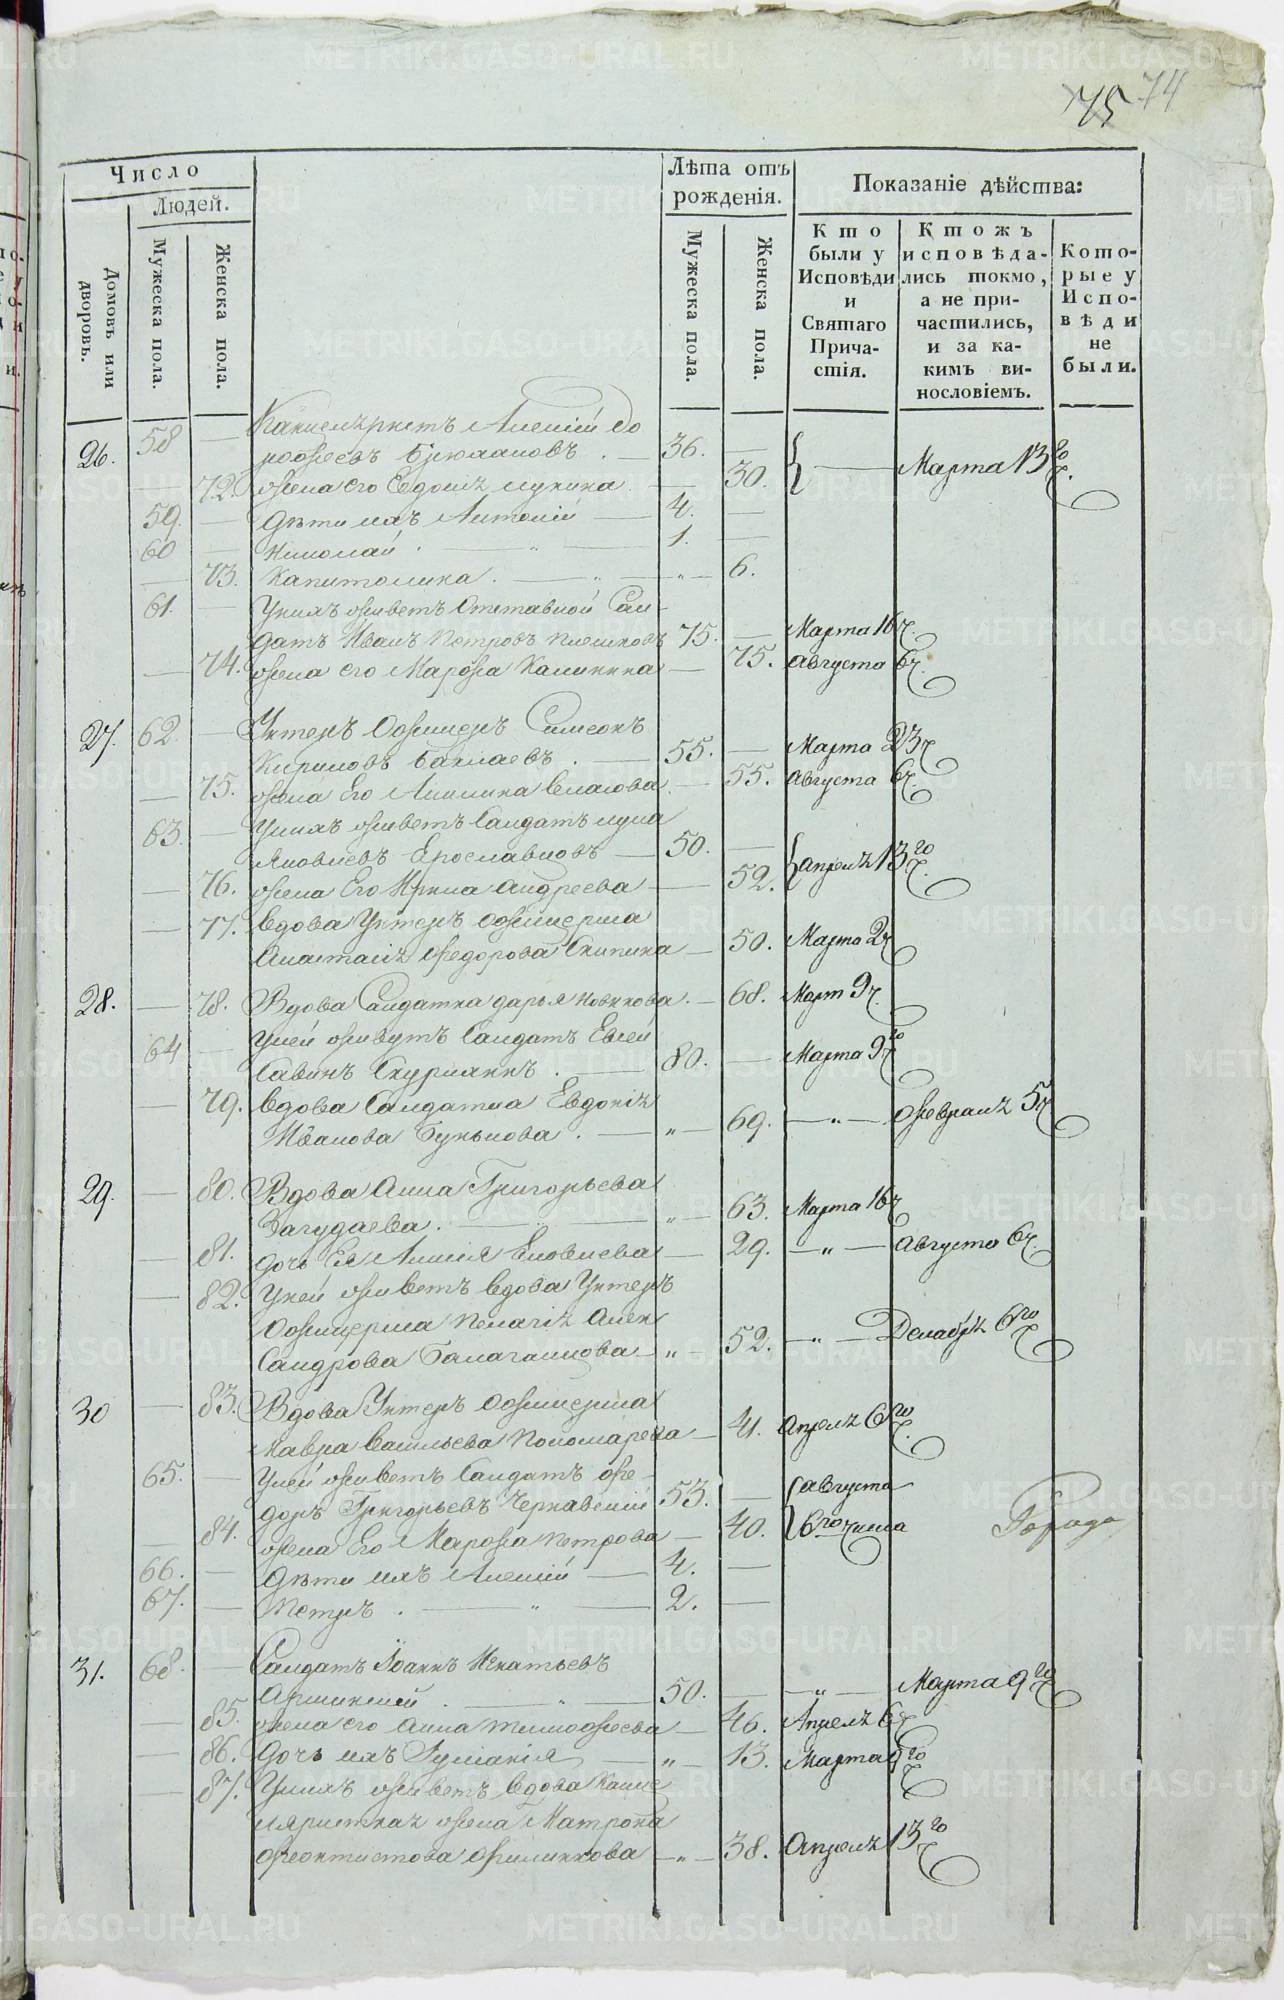 75 74
Число
Людей.
Домовъ или дворовъ.
Мужеска пола.
Женска пола.
Лѣта отъ рожденія.
Мужеска пола.
Женска пола.
Показаніе дѣйства:
Кто были у Исповѣди и Святаго Причастія.
Ктожъ исповѣдались токмо, а не причастились, и за какимъ винословіемъ.
Которые у Исповѣди не были.
26. 58 — Канцеляристъ Алексій До
рофеевъ . — 36. — Марта 13го
— 72. жена его — 30.
59. — дѣти ихъ Антоній — 4. —
60 — Николай . — " — 1. —
— 73. Капитолина . — " — " — 6.
61. — У нихъ живетъ Отставной Сал-
датъ Иванъ Петровъ 75. — Марта 16ч.
— 74. жена его Марфа Калинина — 75. Августа 6ч.
27. 62. — Унтеръ Офицеръ Симеонъ
Кириловъ . — 55. — Марта 23ч
— 75. жена Его Акилина Власова — 55. Августа 6ч.
63. — У нихъ живетъ Салдатъ Лука
Яковлевъ Ерославцовъ — 50. —
— 76. жена Его Ирина Андреева — 52. Апреля 13го ч.
— 77. вдова Унтеръ Офицерша
Анастасія Федорова Скипина — 50. Марта 2ч
28. — 78. Вдова Салдатка Дарья Новикова. — 68. Март 9ч.
64 — У ней живутъ Салдатъ Евсей
Савинъ Скурихинъ . — 80. — Марта 9го
— 79. вдова Салдатка Евдокія
Иванова . — " — 69. — " — Февраля 5ч
29. — 80. Вдова Анна Григорьева
Загудаева . — " — 63. Марта 16ч
— 81. дочь Ея — 29. — " — Августа 6ч.
— 82. У ней живетъ вдова Унтеръ
Офицерша Пелагія Алек
сандрова Балаганцова — " — 52. — " — Декабря 6го
30 — 83. Вдова Унтеръ Офицерша
Мавра Васильева Пономарева — 41. Апреля 6го ч.
65. — У ней живетъ Салдатъ Фе-
доръ Григорьевъ Чернавскій 53. — Августа
— 84. жена Его Марфа Петрова — 40. 6го числа
66. — Дѣти ихъ Алексій — 4. —
67. — Петръ . — " — 2. —
Города
31. 68. — Салдатъ Іоаннъ Игнатьевъ
. — " — 50. — " — Марта 9го
— 85. жена его Анна Тимофеева — 46. Апреля 6ч
— 86. Дочь ихъ — " — 13. Марта 9го
— 87. У нихъ живетъ вдова Канце
ляристская жена Матрона
Феоктистова Филинкова — " — 38. Апреля 13го
METRIKI.GASO-URAL.RU